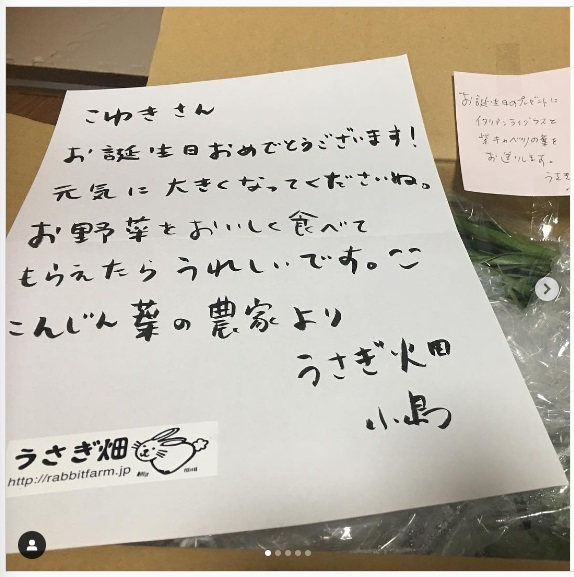 こゆきさん
お誕生日おめでとうございます!
元気に大きくなってくださいね。
お野菜をおいしく食べて
もらえたらうれしいです。
こんじん葉の農家より
うさぎ畑
小島
うさぎ畑
http://rabbitfarm.jp
お誕生日のプレゼントに
イタリアンライグラスと
紫キャベツの葉を
お送りします。
うさぎ